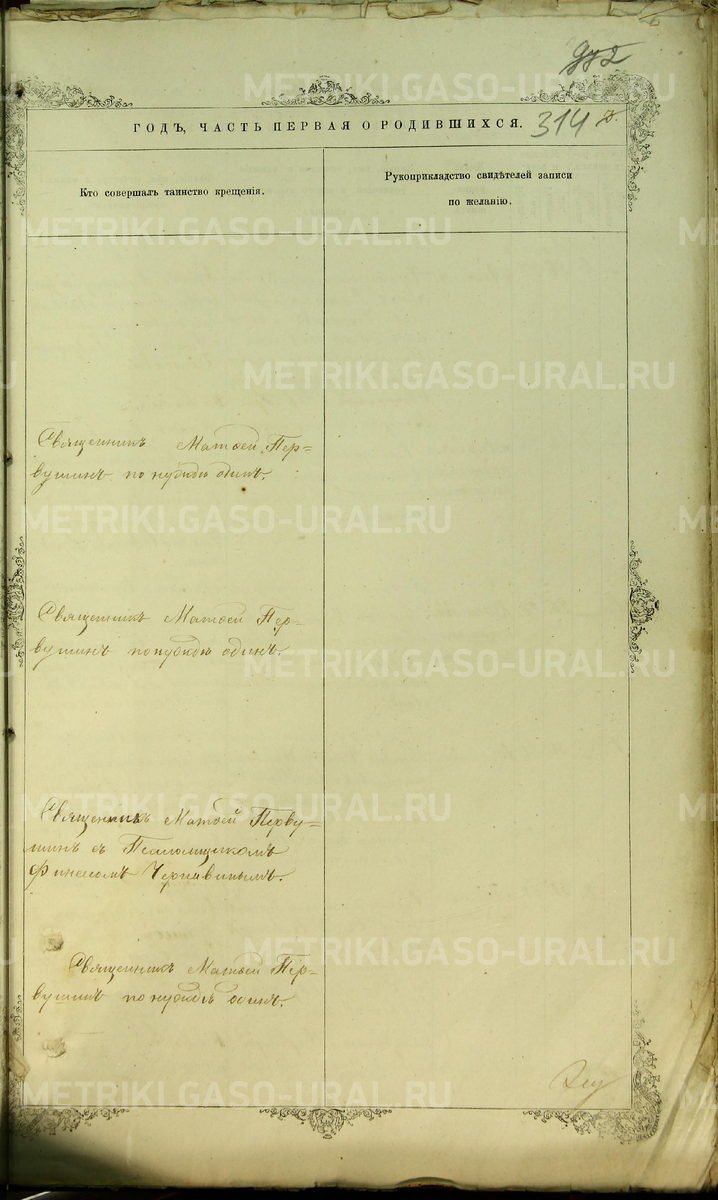 ГОДЪ, ЧАСТЬ ПЕРВАЯ О РОДИВШИХСЯ.
314
Кто совершалъ таинство крещенія.
Рукоприкладство свидѣтелей записи
по желанію.
Священникъ Матѳей Пер-
вушинъ по нуждѣ одинъ.
Священникъ Матѳей Пер-
вушинъ по нуждѣ одинъ.
Священникъ Матѳей Перву-
шинъ съ Псаломщикомъ
Финеесомъ Чернавинымъ.
Священникъ Матѳей Пер-
вушинъ по нуждѣ одинъ.
METRIKI.GASO-URAL.RU